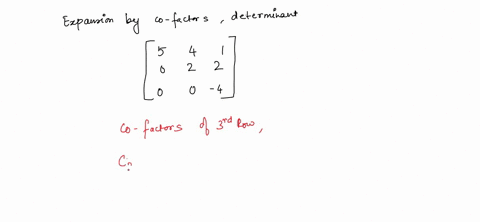 Expansion by co-factors, determinant
5 4 1
0 2 2
0 0 -4
co-factors of 3rd Row,